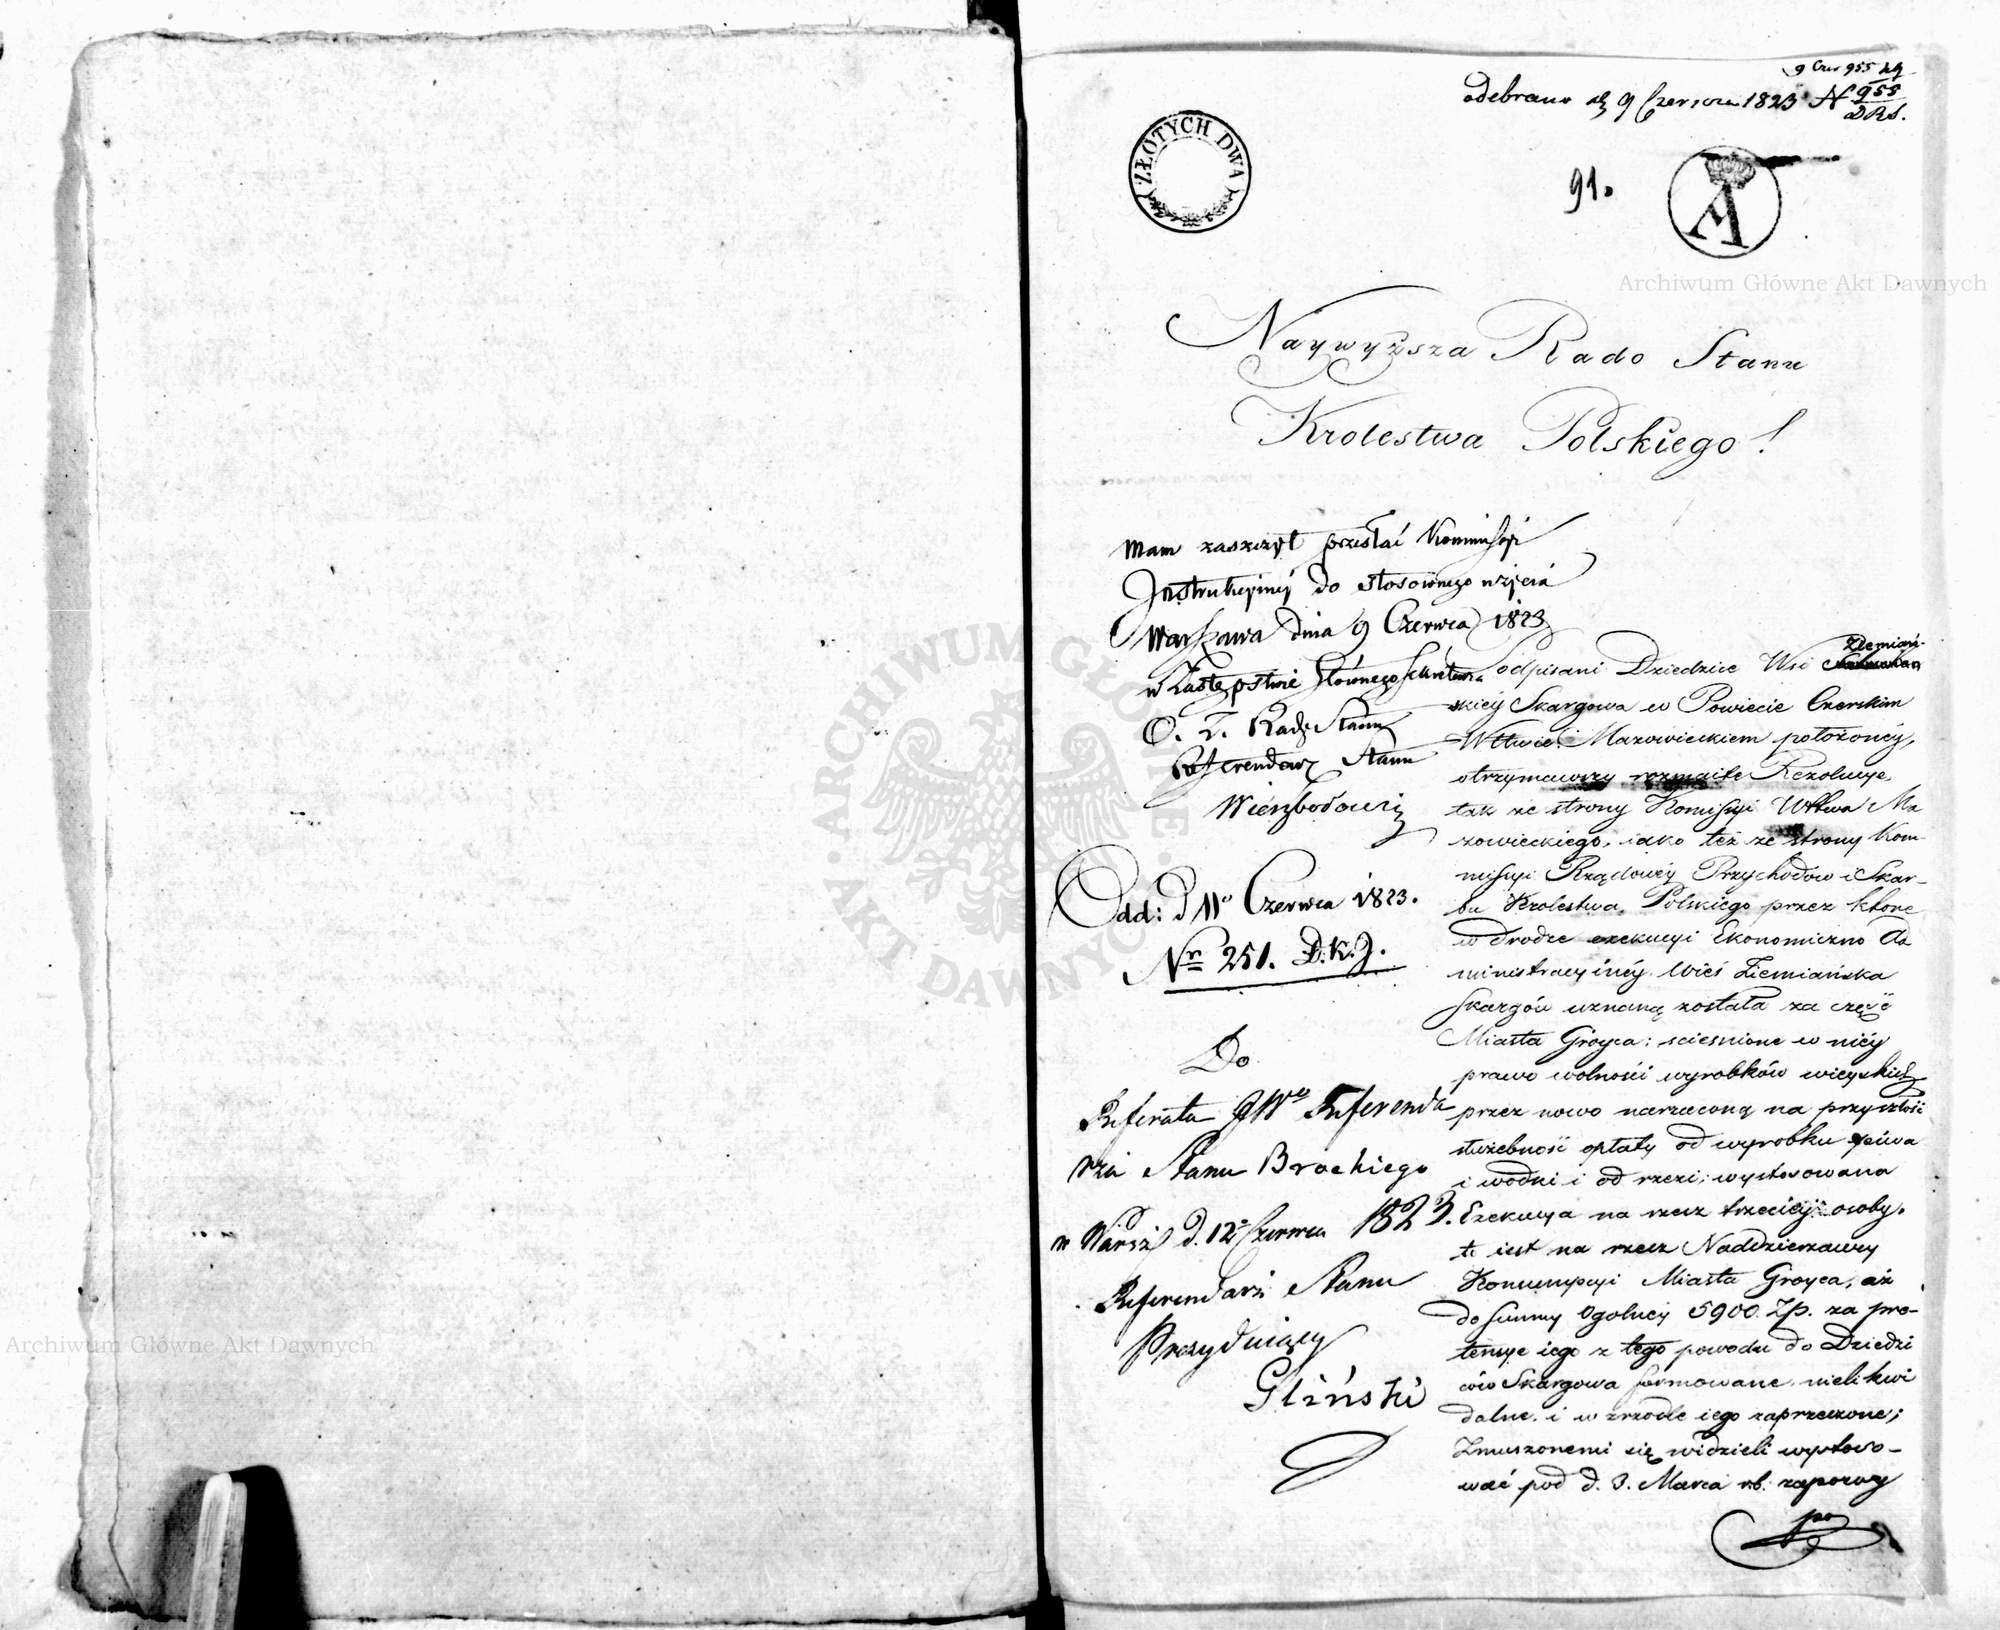 9 Czer 955
odebrano d. 9 Czerwca 1823 N 955
DRS.
ZŁOTYCH DWA
91.
A
Archiwum Główne Akt Dawnych
Naywyższa Rado Stanu
Krolestwa Polskiego!
Mam zaszczyt przesłać Kommissyi
Instrukcyiney do stosownego użycia
Warszawa dnia 9 Czerwca 1823
w Zastępstwie Głównego Sekretarza
O. Z. Rady Stanu
Referendarz Stanu
Wierzbołowicz
Odd: d 11º Czerwca 1823.
Nr 251. D.K.J.
Do
Referatu JWº Referenda
rza Stanu Brockiego
w Warsz d. 12º Czerwca 1823.
Referendarz Stanu
Prezyduiący
Gliński
odpisani Dziedzice Wsi Ziemiań-
skiey Skargowa w Powiecie Czerskim
Wttwie Mazowieckiem położoney,
otrzymawszy rozmaite Rezolucye
tak ze strony Komissyi Wttwa Ma
zowieckiego, iako też ze strony Kom-
missyi Rządowey Przychodow i Skar-
bu Krolestwa Polskiego przez ktore
w drodze exekucyi Ekonomiczno Ad
ministracyiney Wieś Ziemiańska
Skargów uznaną została za część
Miasta Groyca: scieśnione w niey
prawo wolności wyrobków wieyskich
przez nowo narzuconą na przyszłość
służebność opłaty od wyrobku piwa
i wodki i od rzezi; wystosowana
Exekucya na rzecz trzeciey osoby,
to iest na rzecz Naddzierzawcy
Konsumpcyi Miasta Groyca, aż
do Summy Ogolney 5900 Zp. za pre-
tensye iego z tego powodu do Dziedzi
ców Skargowa formowane nielikwi
dalne i w zrzodle iego zaprzeczone;
Zmuszonemi się widzieli wystoso-
wać pod d. 3. Marca r.b. zapozwy
po
ARCHIWUM GŁÓWNE · AKT DAWNYCH ·
Archiwum Główne Akt Dawnych